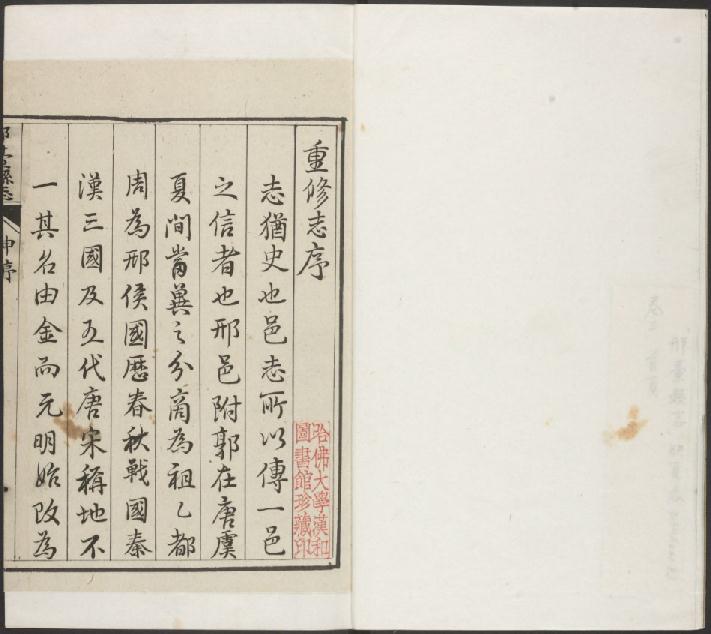 重修志序
志猶史也邑志所以傳一邑
之信者也邢邑附郭在唐虞
夏間當冀之分商為祖乙都
周為邢侯國歷春秋戰國秦
漢三國及五代唐宋稱地不
一其名由金而元明始改為
哈佛大學漢和
圖書館珍藏印
縣志
申序